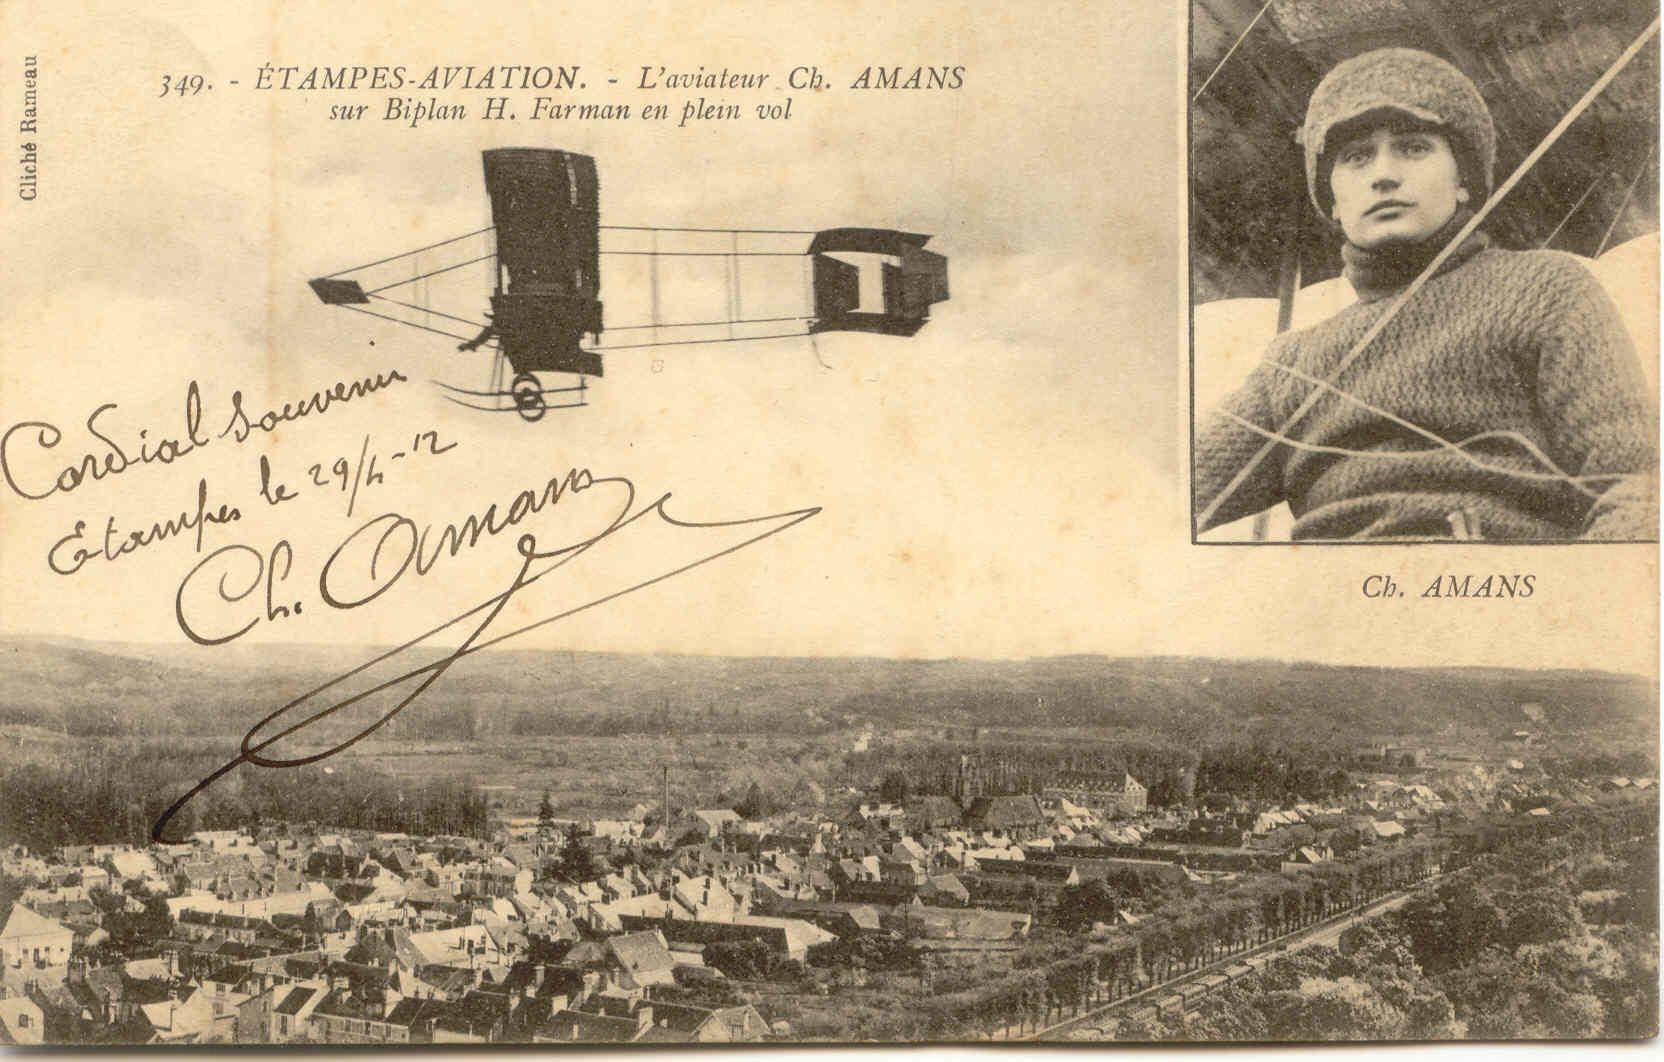 349. - ÉTAMPES-AVIATION. - L'aviateur Ch. AMANS
sur Biplan H. Farman en plein vol
Cliché Rameau
Cordial souvenir
Etampes le 29/4-12
Ch. Amans
Ch. AMANS